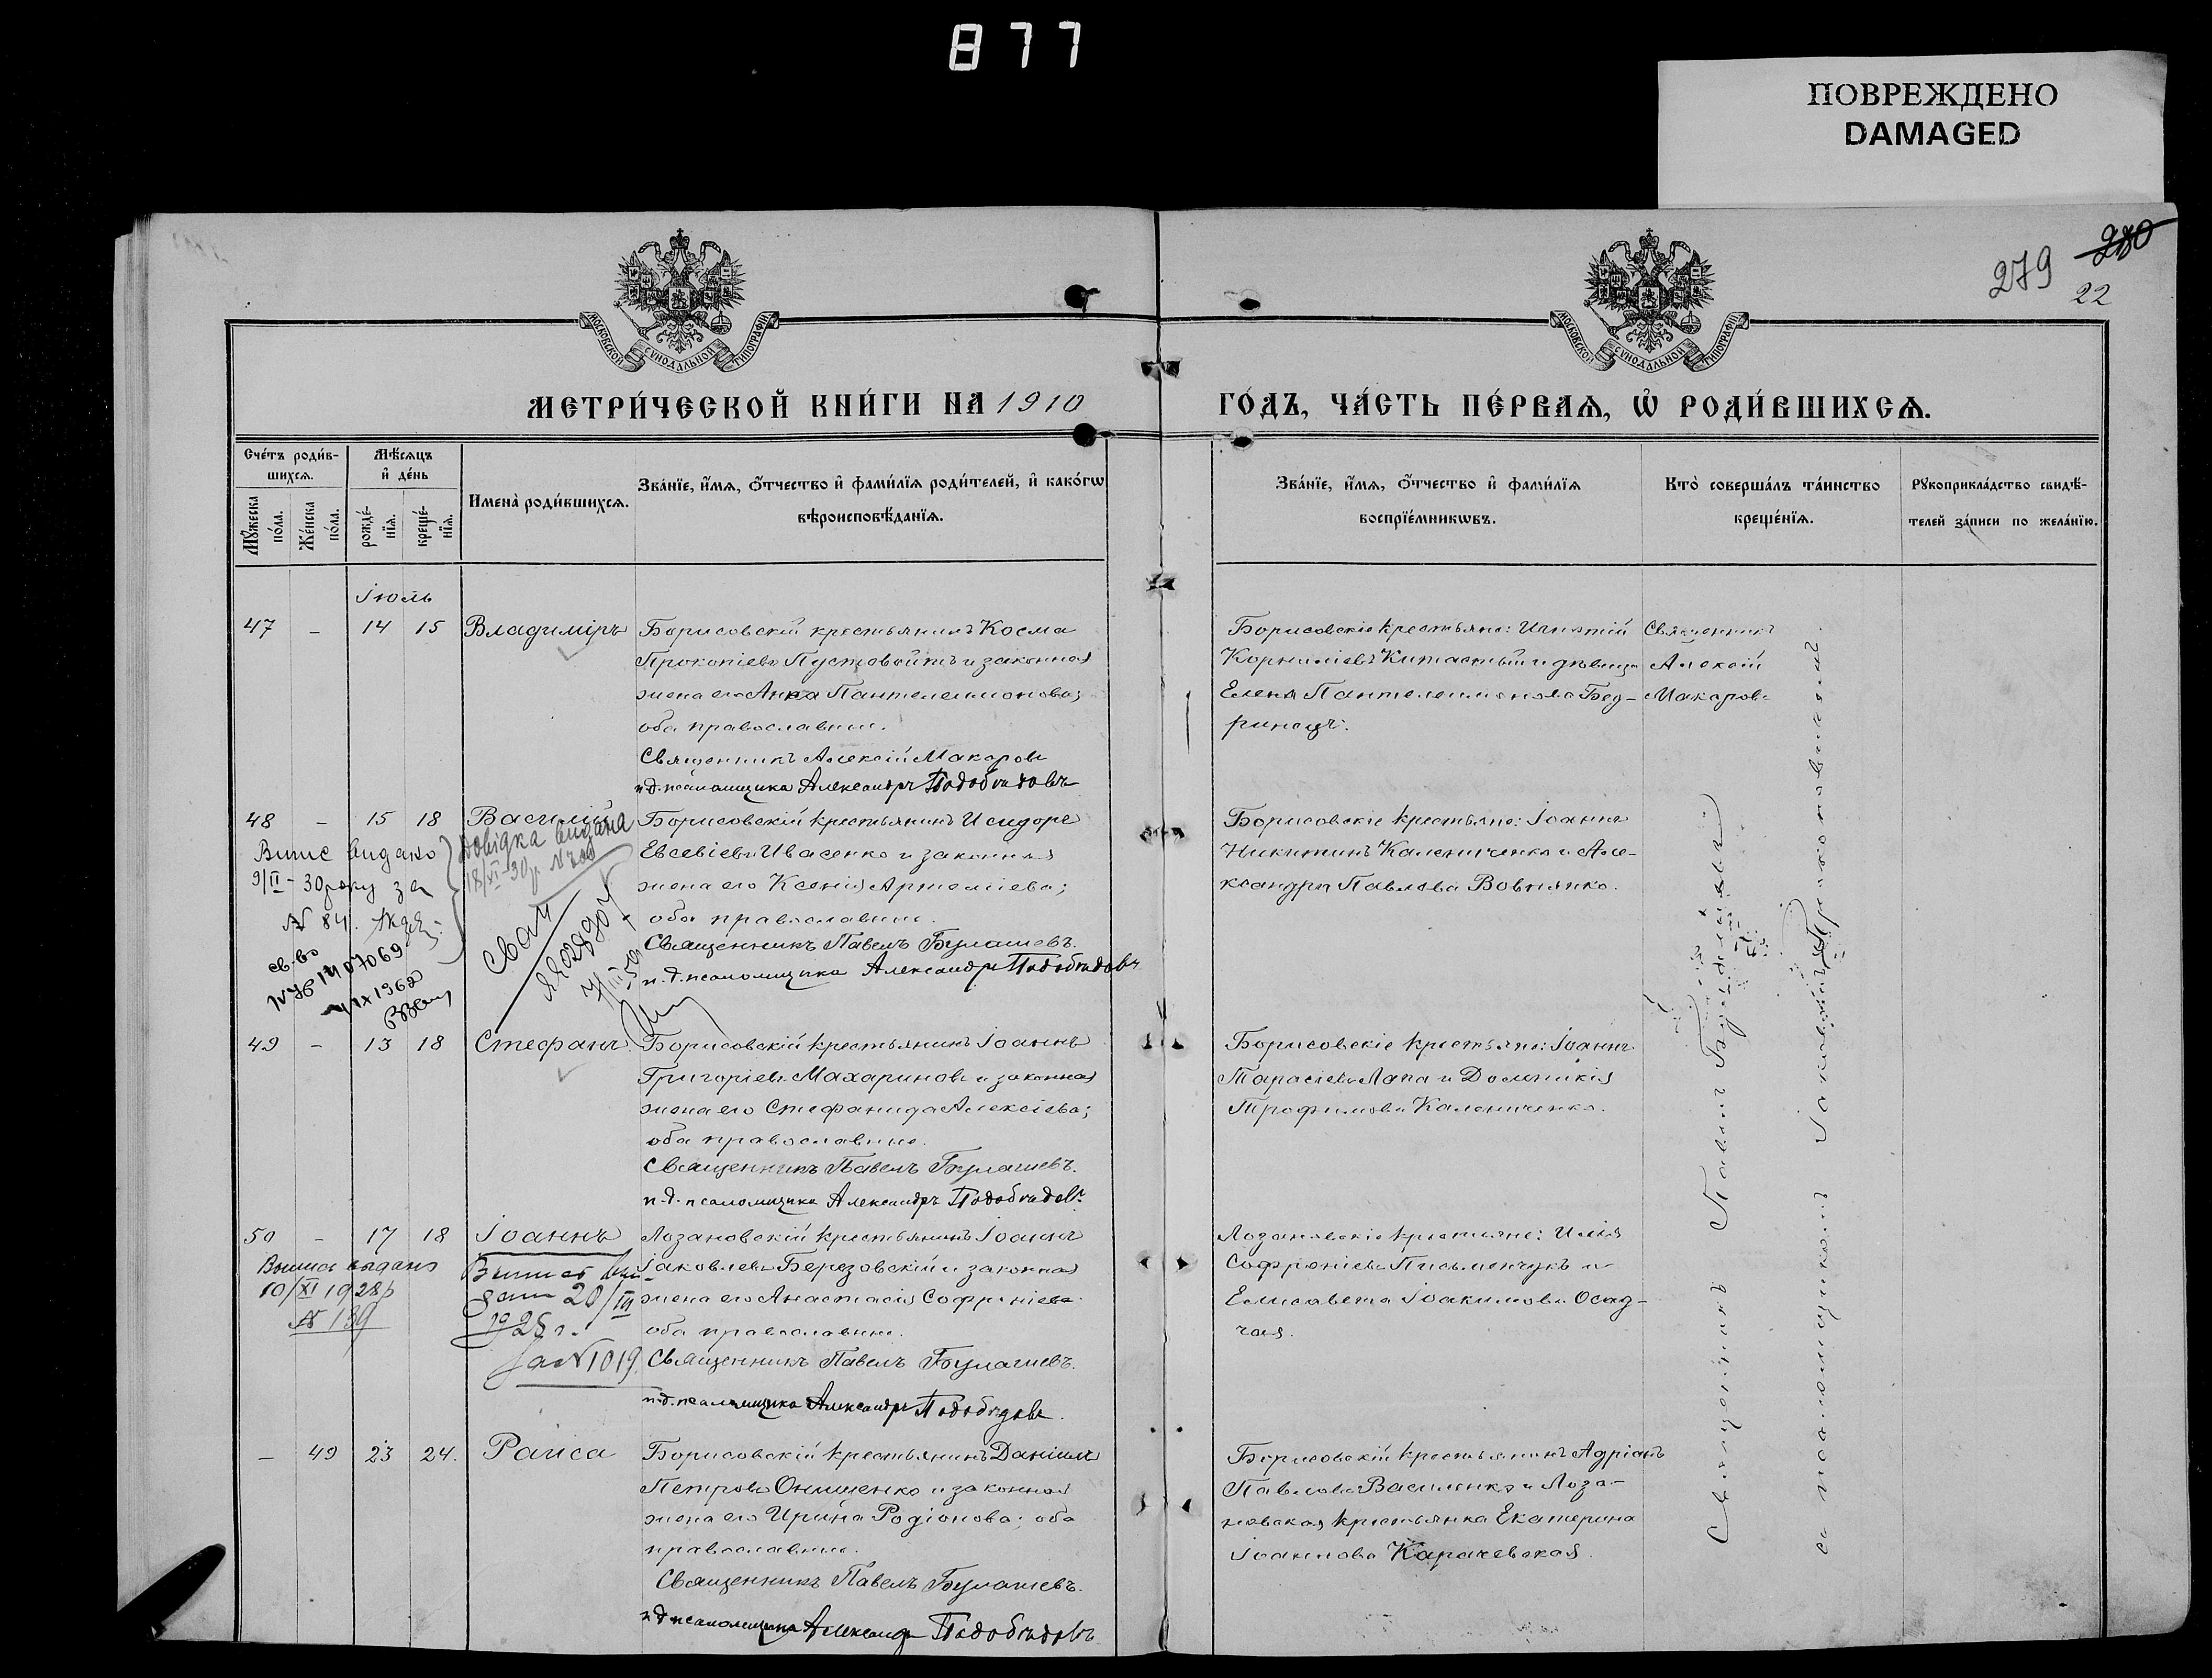 877
ПОВРЕЖДЕНО
DAMAGED
279 280
22
МОСКОВСКОЙ СѴНОДАЛЬНОЙ ТИПОГРАФІИ
МОСКОВСКОЙ СѴНОДАЛЬНОЙ ТИПОГРАФІИ
МЕТРИ́ЧЕСКОЙ КНИ́ГИ НА 1910 ГО́ДЪ, ЧА́СТЬ ПЕ́РВАѦ, Ѡ҆ РОДИ́ВШИХСѦ.
Сче́тъ роди́в-
шихсѧ.
Мꙋ́жеска по́ла.
Же́нска по́ла.
Мѣ́сѧцъ
и҆ де́нь
рожде́-
нїѧ.
креще́-
нїѧ.
Имена̀ роди́вшихсѧ.
Зва́нїе, и҆́мѧ, о҆́тчество и҆ фами́лїѧ роди́телей, и҆ како́гѡ
вѣроисповѣ́данїѧ.
Зва́нїе, и҆́мѧ, о҆́тчество и҆ фами́лїѧ
воспрїе́мникѡвъ.
Кто̀ соверша́лъ та́инство
креще́нїѧ.
Рꙋкоприкла́дство свидѣ́-
телей за́писи по жела́нїю.
Іюль
47 – 14 15 Владиміръ
Борисовскій крестьянинъ Косма
Прокопіевъ Пустовойтъ и законная
жена его Анна Пантелеимонова;
оба православные.
Священникъ Алексій Макаровъ
и.д. псаломщика Александръ Подобѣдовъ
Борисовскіе крестьяне: Игнатій
Корниліевъ Китастый и дѣвица
Елена Пантелеимонова Бед-
ринецъ.
Священникъ
Алексій
Макаровъ
48 – 15 18 Василій
Випис видано
9/II - 30 року за
№ 84.
Довідка видана
18/VI-30 р.
св-во
1962
Борисовскій крестьянинъ Исидоръ
Евсевіевъ Ивасенко и законная
жена его Ксенія Артеміева;
оба православные.
Священникъ Павелъ Булашевъ.
и.д. псаломщика Александръ Подобѣдовъ
Борисовскіе крестьяне: Іоаннъ
Никитинъ Калениченко и Але-
ксандра Павлова Вовнянко.
49 – 13 18 Стефанъ
Борисовскій крестьянинъ Іоаннъ
Григоріевъ Махариновъ и законная
жена его Стефанида Алексіева;
оба православные.
Священникъ Павелъ Булашевъ.
и.д. псаломщика Александръ Подобѣдовъ
Борисовскіе крестьяне: Іоаннъ
Тарасіевъ Лапа и Домникія
Трофимова Калениченко.
50 – 17 18 Іоаннъ
Выписъ выдано
10/XI 1928 р
№ 139
20/III
1925 г.
за №1019.
Лозановскій крестьянинъ Іоаннъ
Іаковлевъ Березовскій и законная
жена его Анастасія Софроніева
оба православные.
Священникъ Павелъ Булашевъ.
и.д. псаломщика Александръ Подобѣдовъ.
Лозановскіе крестьяне: Илія
Софроніевъ Письменчукъ и
Елисавета Іоакимова Осад-
чая.
– 49 23 24. Раиса
Борисовскій крестьянинъ Даніилъ
Петровъ Онищенко и законная
жена его Ирина Родіонова; оба
православные.
Священникъ Павелъ Булашевъ.
и.д. псаломщика Александръ Подобѣдовъ
Борисовскій крестьянинъ Адріанъ
Павловъ Василенко и Лоза-
новская крестьянка Екатерина
Іоаннова Карачевская.
Священникъ Павелъ Булашевъ
съ псаломщикомъ